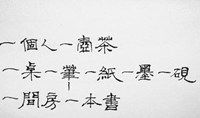 一個人一壺茶
一桌一筆一紙一墨一硯
一間房一本書